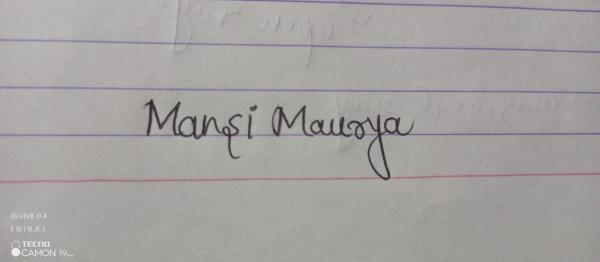 Mansi Maurya
TECNO
CAMON 19